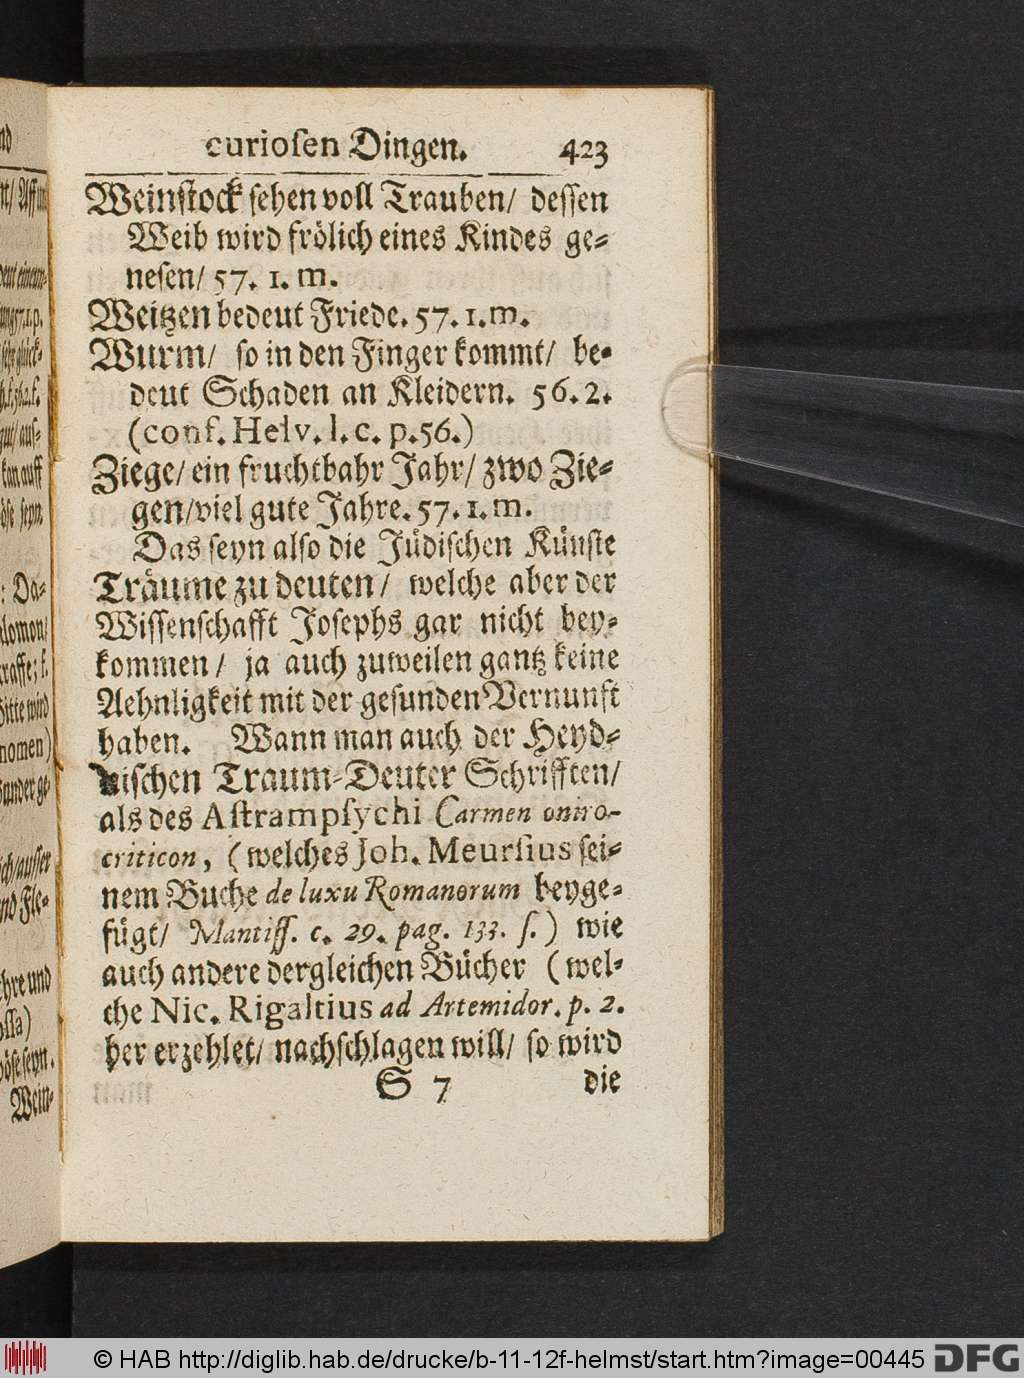 curiosen Dingen. 423
Weinstock sehen voll Trauben/ dessen
Weib wird frölich eines Kindes ge-
nesen/ 57. 1. m.
Weitzen bedeut Friede. 57. 1. m.
Wurm/ so in den Finger kommt/ be-
deut Schaden an Kleidern. 56. 2.
(conf. Helv. l. c. p. 56.)
Ziege/ ein fruchtbahr Jahr/ zwo Zie-
gen/ viel gute Jahre. 57. 1. m.
Das seyn also die Jüdischen Künste
Träume zu deuten/ welche aber der
Wissenschafft Josephs gar nicht bey-
kommen/ ja auch zuweilen gantz keine
Aehnligkeit mit der gesunden Vernunft
haben. Wann man auch der Heyd-
nischen Traum-Deuter Schrifften/
als des Astrampsychi Carmen oniro-
criticon, (welches Joh. Meursius sei-
nem Buche de luxu Romanorum beyge-
fügt/ Mantiss. c. 29. pag. 133. s.) wie
auch andere dergleichen Bücher (wel-
che Nic. Rigaltius ad Artemidor. p. 2.
her erzehlet/ nachschlagen will/ so wird
S 7 die
© HAB http://diglib.hab.de/drucke/b-11-12f-helmst/start.htm?image=00445 DFG